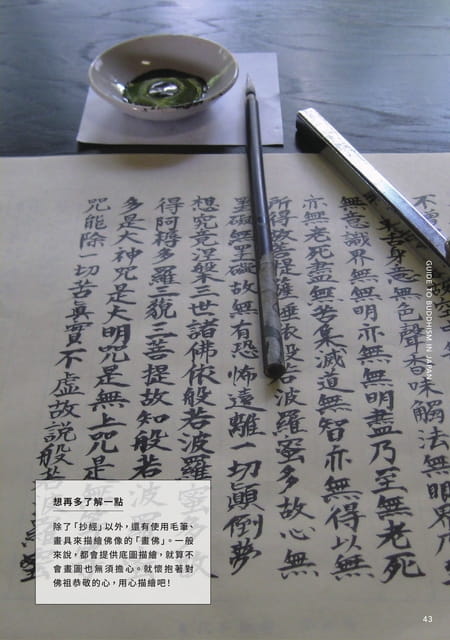 身意無色聲香味觸法無
無意識界無無明亦無無明盡乃至無老死
亦無老死盡無苦集滅道無智亦無得以無
所得故菩提薩埵依般若波羅蜜多故心無
罣礙無罣礙故無有恐怖遠離一切顛倒夢
想究竟涅槃三世諸佛依般若波羅蜜多故
得阿耨多羅三藐三菩提故知般若波羅
多是大神咒是大明咒是無上咒是
咒能除一切苦真實不虛故說般若
GUIDE TO BUDDHISM IN JAPAN
想再多了解一點
除了「抄經」以外，還有使用毛筆、
畫具來描繪佛像的「畫佛」。一般
來說，都會提供底圖描繪，就算不
會畫圖也無須擔心。就懷抱著對
佛祖恭敬的心，用心描繪吧！
43